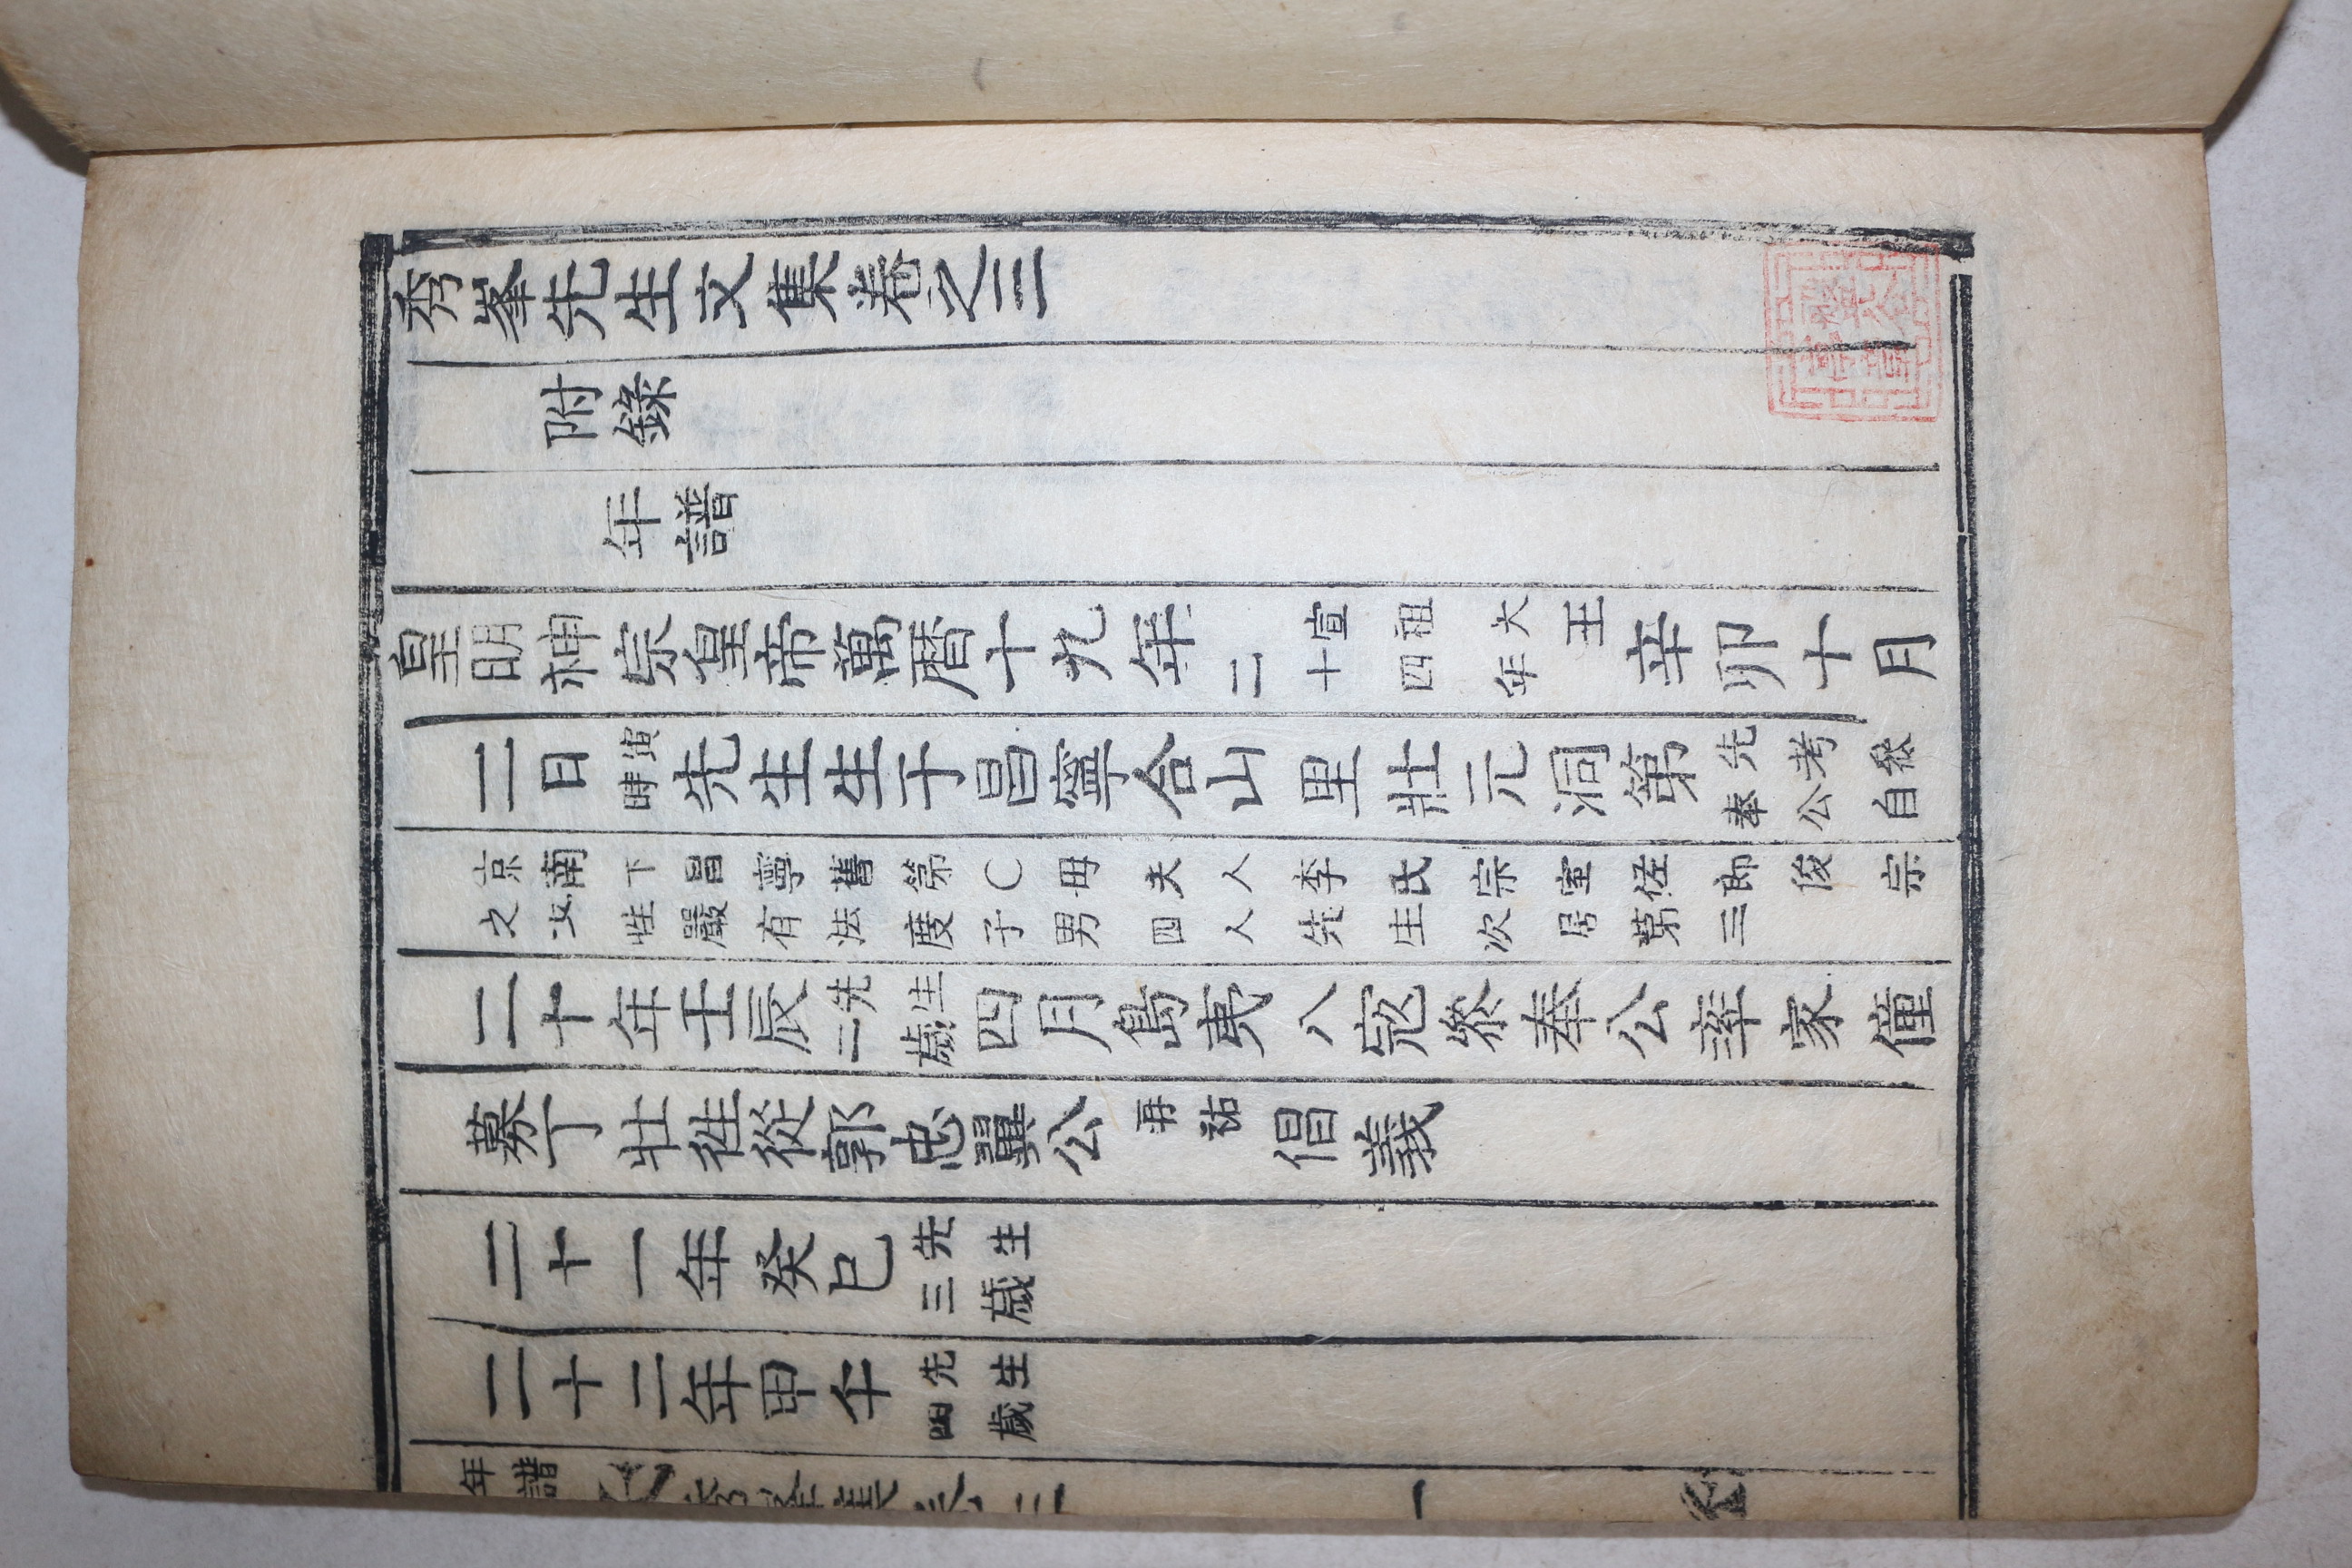 秀峯先生文集卷之三
附錄
年譜
皇明神宗皇帝萬曆十九年宣祖大王二十四年辛卯十月
二日寅時先生生于昌寧合山里壯元洞第先考叅奉公自
京南下昌寧舊第○母夫人李氏宗室佐郎俊宗
之女性嚴有法度子男四人先生次居第三
二十年壬辰先生二歲四月島夷入寇叅奉公率家僮
募丁壯徃從郭忠翼公再祐倡義
二十一年癸巳先生三歲
二十二年甲午先生四歲
年譜
一